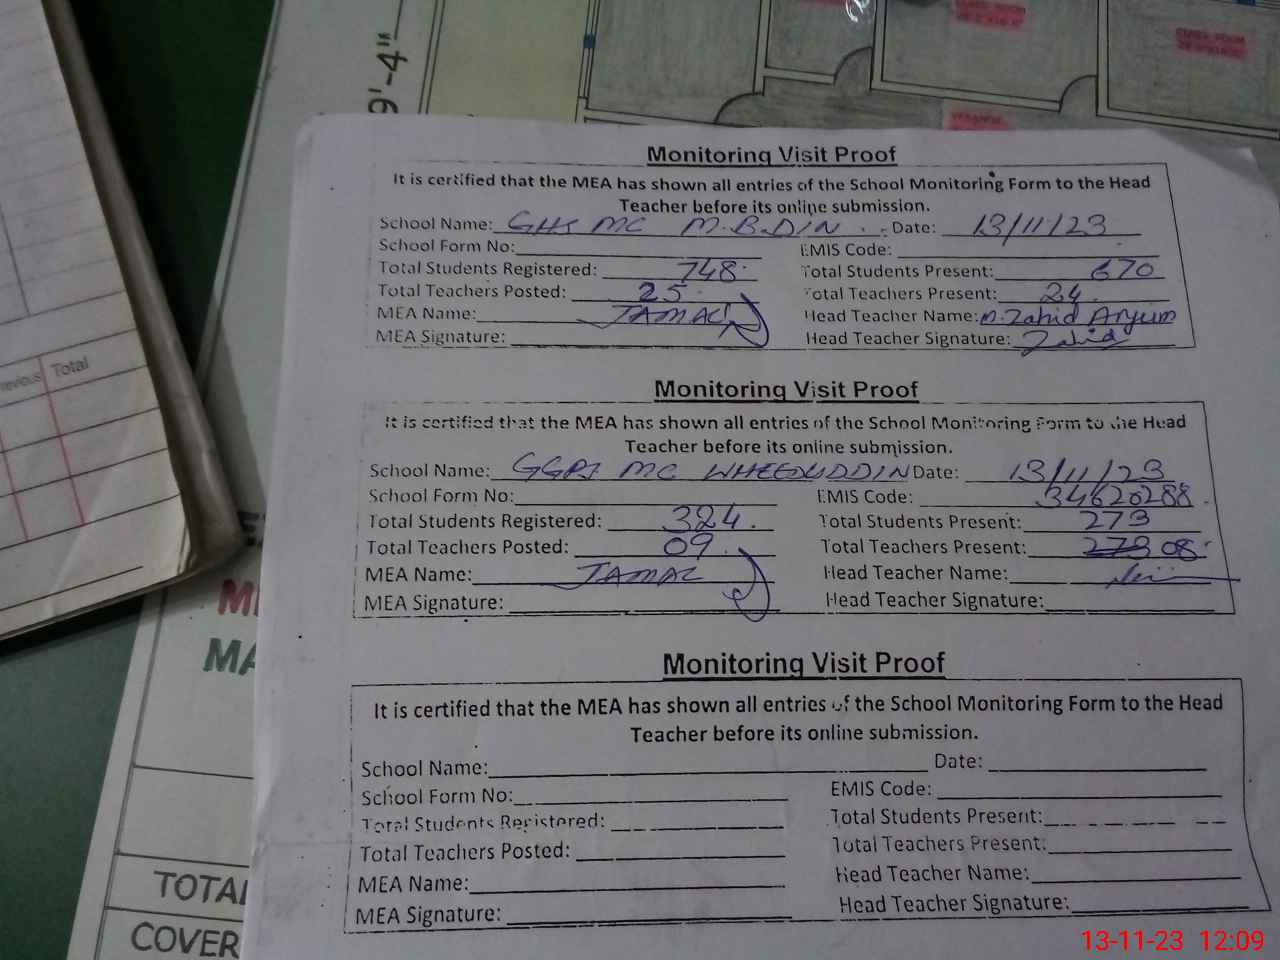 9'-4"
CLASS ROOM
evious Total
Monitoring Visit Proof
It is certified that the MEA has shown all entries of the School Monitoring Form to the Head
Teacher before its online submission.
School Name: GHS MC M.B.DIN Date: 13/11/23
School Form No: EMIS Code:
Total Students Registered: 748 Total Students Present: 670
Total Teachers Posted: 25 Total Teachers Present: 24
MEA Name: JAMAL Head Teacher Name: M. Zahid Anjum
MEA Signature: Head Teacher Signature: Zahid
Monitoring Visit Proof
It is certified that the MEA has shown all entries of the School Monitoring Form to the Head
Teacher before its online submission.
School Name: GGPS MC WHEEDUDDIN Date: 13/11/23
School Form No: EMIS Code: 34620288
Total Students Registered: 324. Total Students Present: 273
Total Teachers Posted: 09. Total Teachers Present: 273 08
MEA Name: JAMAL Head Teacher Name:
MEA Signature: Head Teacher Signature:
Monitoring Visit Proof
It is certified that the MEA has shown all entries of the School Monitoring Form to the Head
Teacher before its online submission.
School Name: Date:
School Form No: EMIS Code:
Total Students Registered: Total Students Present:
Total Teachers Posted: Total Teachers Present:
MEA Name: Head Teacher Name:
MEA Signature: Head Teacher Signature:
M
MA
TOTAL
COVER
13-11-23 12:09